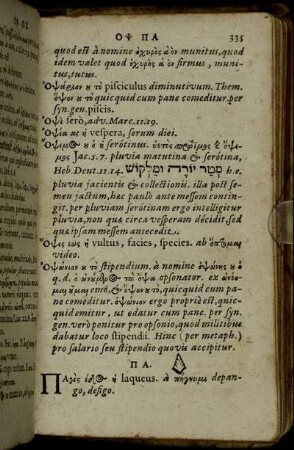 ΟΨ ΠΑ 335
quod est à nomine ἐχυρὸς ὰ ὸν munitus, quod
idem valet quod ὀχυρὸς ὰ ὸν firmus, muni-
tus, tutus.
Ὀψάριον ȣ τὸ pisciculus diminutivum. Them.
ὄψον ȣ τὸ quicquid cum pane comeditur. per
syn. gen. piscis.
Ὀψὲ serò, adv. Marc. 11. 19.
Ὀψία ας ἡ vespera, serum diei.
Ὄψιμος ȣ ὁ ἡ serotinus. ὑετὸς πρώϊμος ὄψι-
μος Jac. 5. 7. pluvia matutina & serotina,
Heb Deut. 11. 14. יורה ומלקוש h. e.
pluvia jacientis & collectionū. illa post se-
men jactum, hæc paulo ante messem contin-
git. per pluviam serotinam ergo intelligitur
pluvia, non quæ circa vesperam decidit, sed
quæ ipsam messem antecedit.
Ὄψις εως ἡ vultus, facies, species. ab ὄπτομαι
video.
Ὀψώνιον ȣ τὸ stipendium. à nomine ὀψώνης ȣ ὁ
q. d. ὁ τὰ ὄψα. opsonator. ex
emo, & ὄψον ȣ τὸ, quicquid cum pa-
ne comeditur. ὀψώνιον ergo propriè est, quic-
quid emitur, ut edatur cum pane. per syn.
gen. verò ponitur pro opsonio, quod militibus
dabatur loco stipendii. Hinc (per metaph.)
pro salario seu stipendio quovis accipitur.
ΠΑ.
Παγὶς ίδος ἡ laqueus. à πήγνυμι depan-
go, defigo.